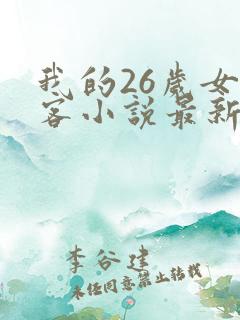 我的26歲女
客小說最新
李谷建
未经同意禁止转载